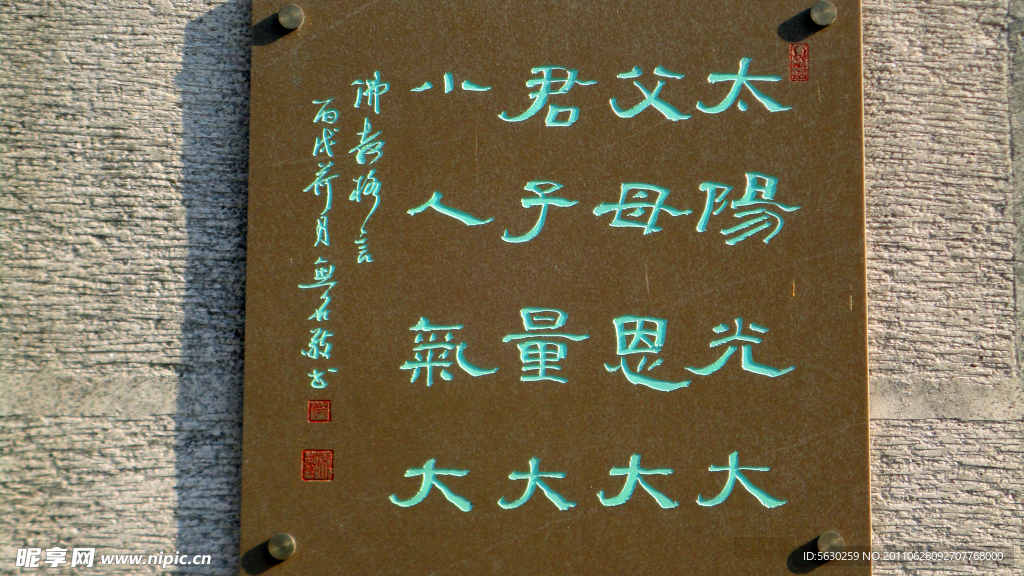 太陽光大
父母恩大
君子量大
小人氣大
佛教格言
丙戌荷月無名敬书
昵享网 www.nipic.cn
ID:5630259 NO:20110628092707768000